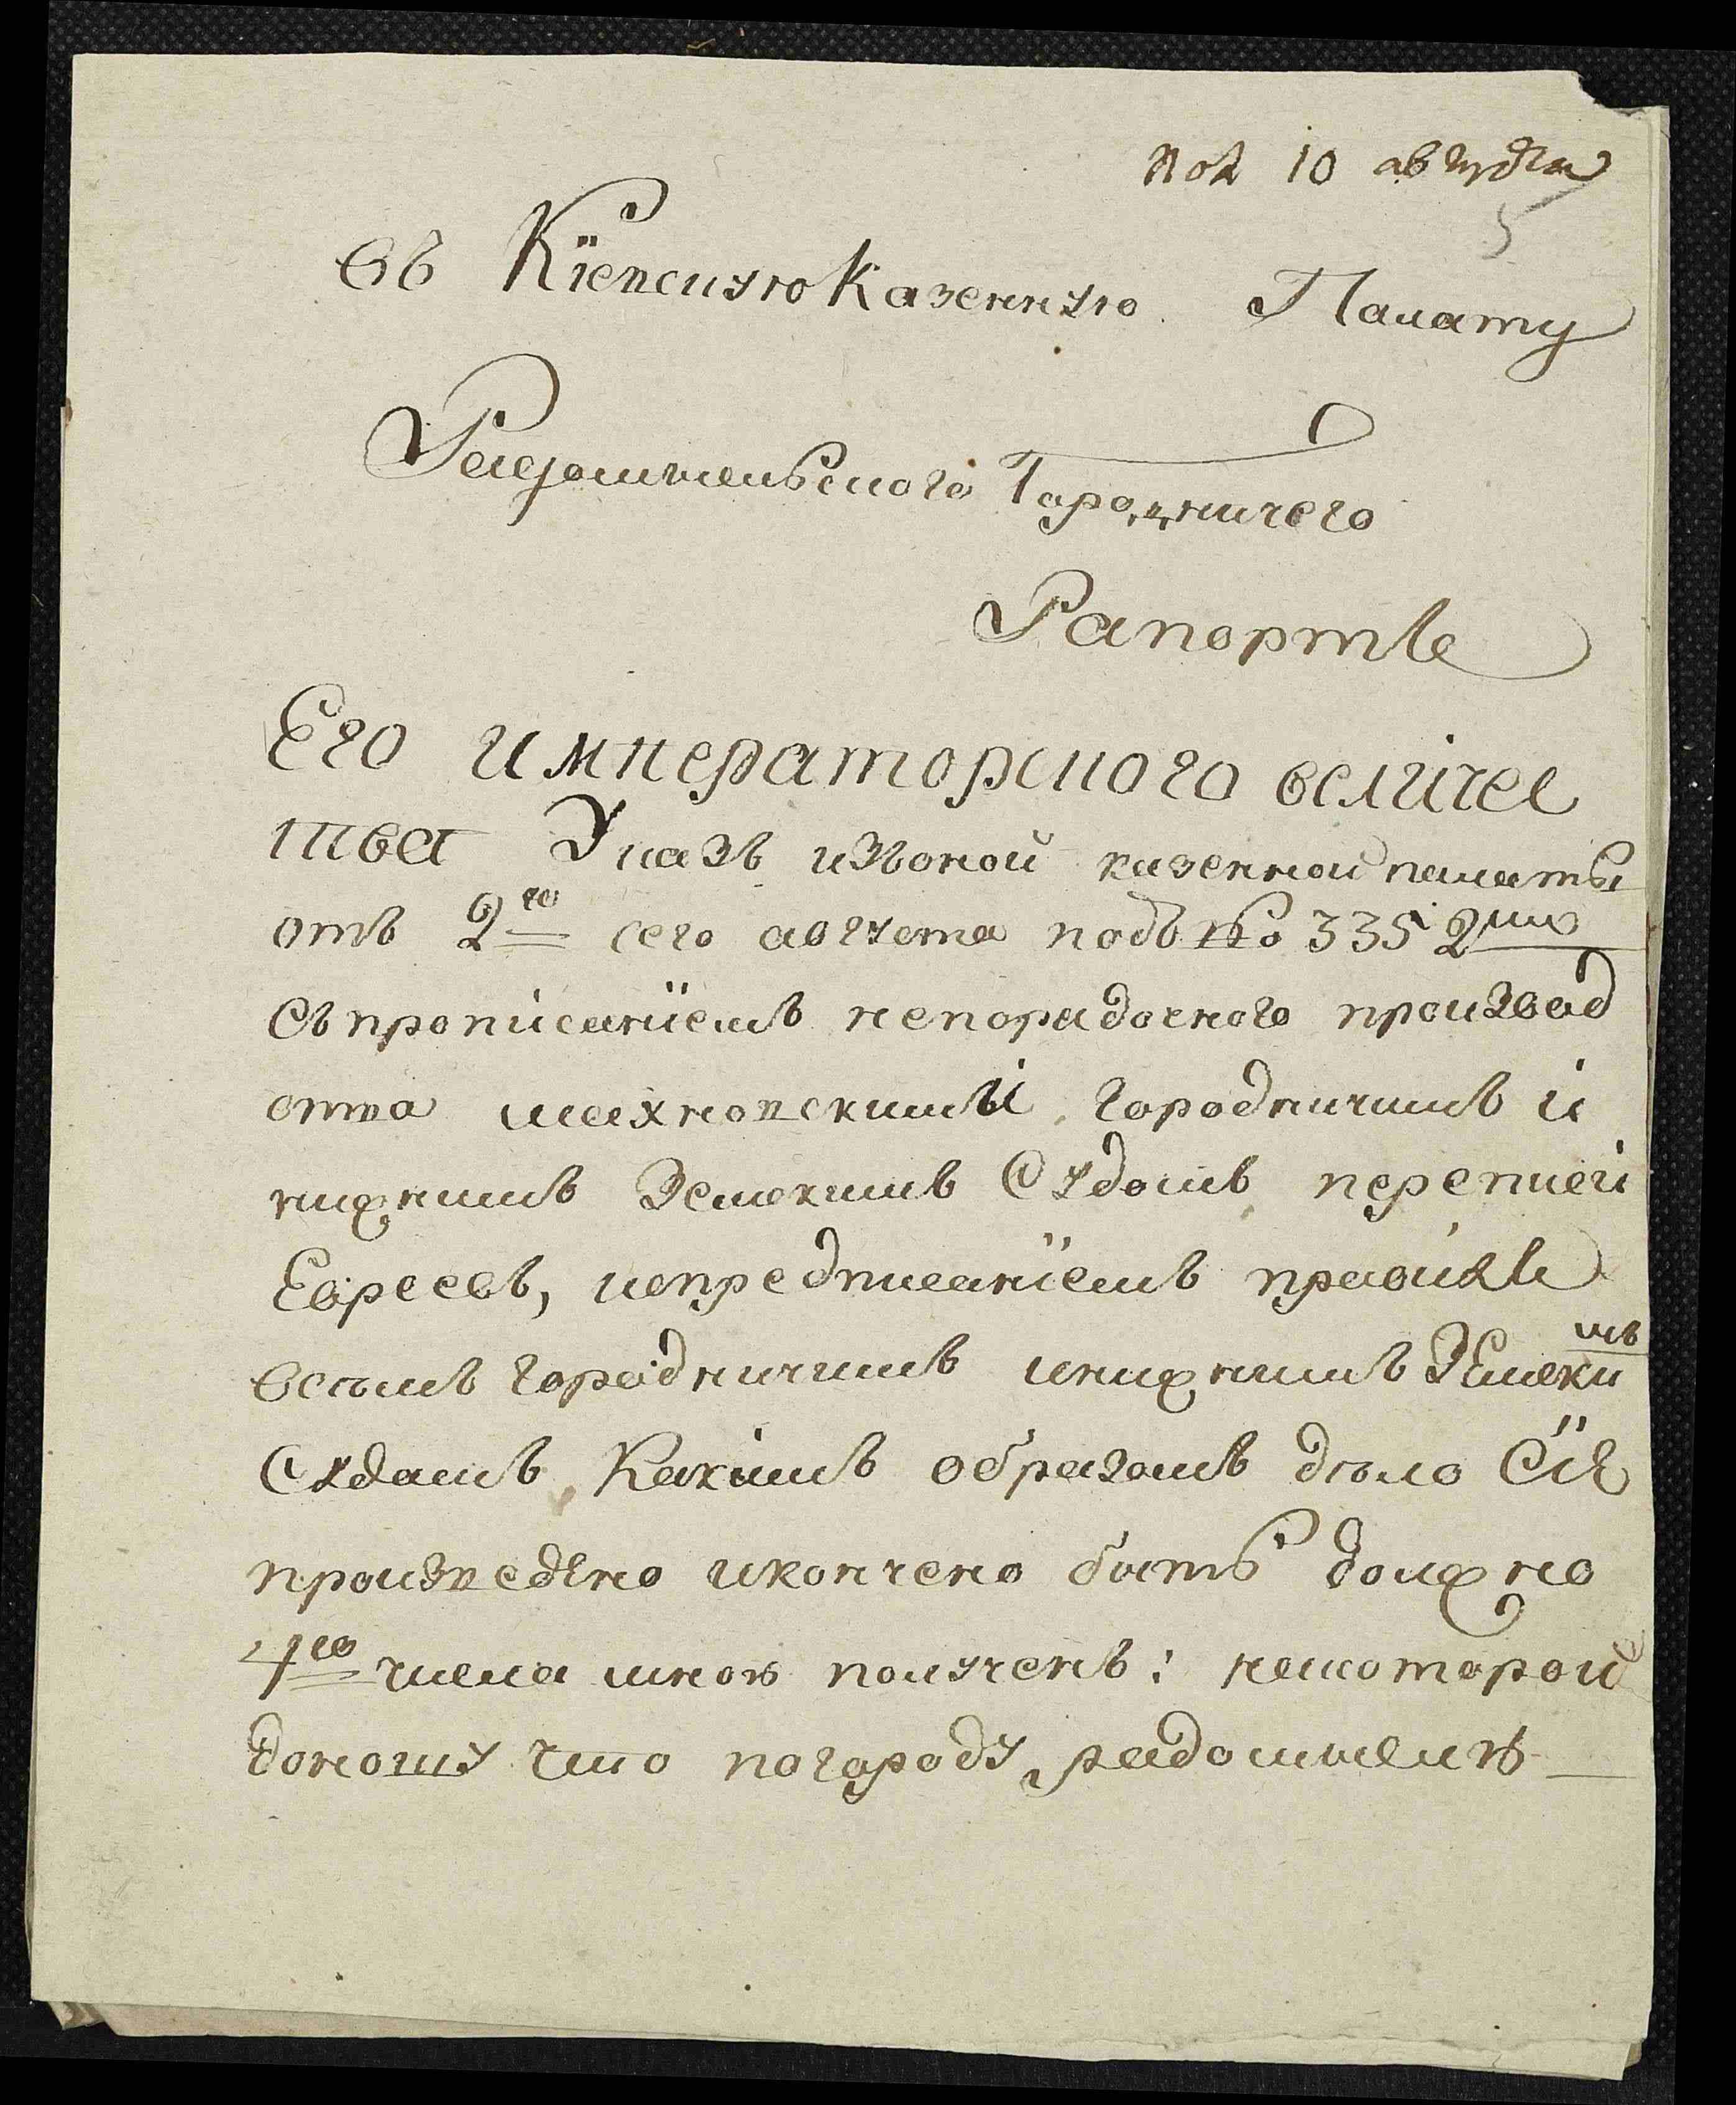 Пол 10 августа
5
Въ Кіевскую Казенную Палату
Радомысльского Городничего
Рапортъ
Его императорского величес
тва Указъ изъоной казенной палаты
отъ 2го сего августа подъ № 3352мъ
съ прописаніемъ непорядочного производ
ства махновскимъ городничимъ и
нижнимъ Земскимъ Судомъ переписи
Евреевъ, испредписаніемъ правилъ
всемъ городничимъ инижнимъ Земскимъ
Судамъ Какимъ образомъ дѣло Сіе
произведено икончено быть должно
4го числа мною полученъ: накоторой
доношу что погороду радомыслю